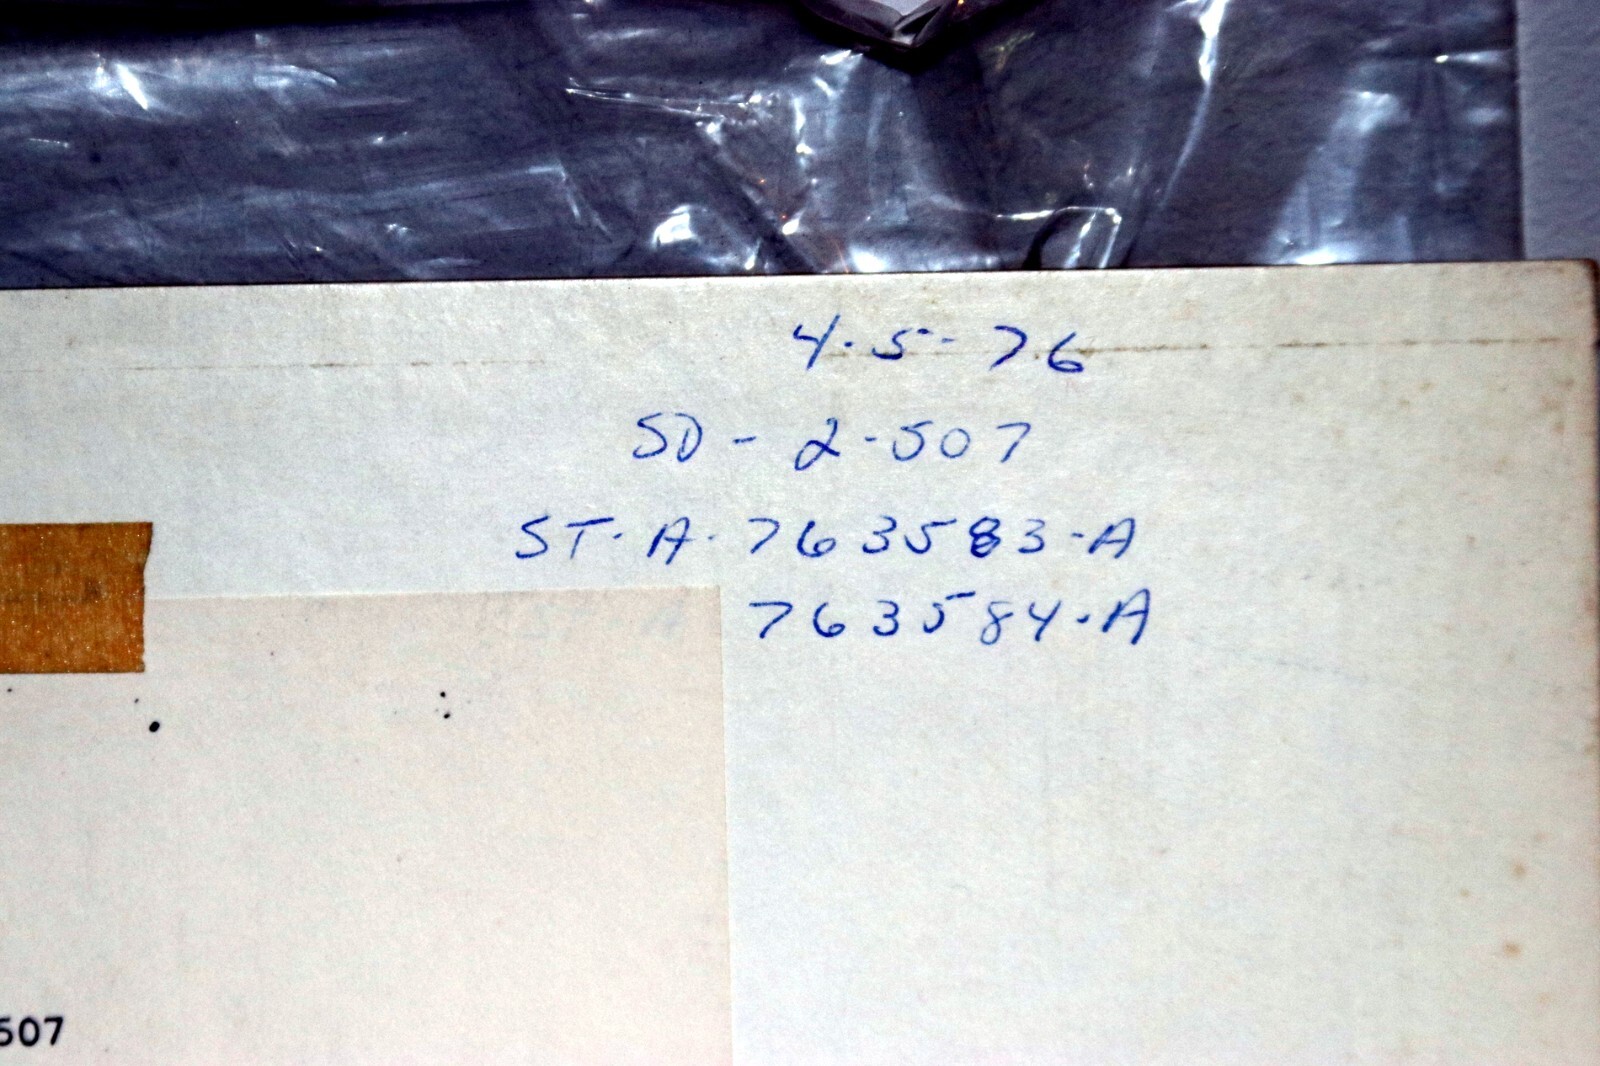 4-5-76
SD-2-507
ST-A-763583-A
763584-A
507